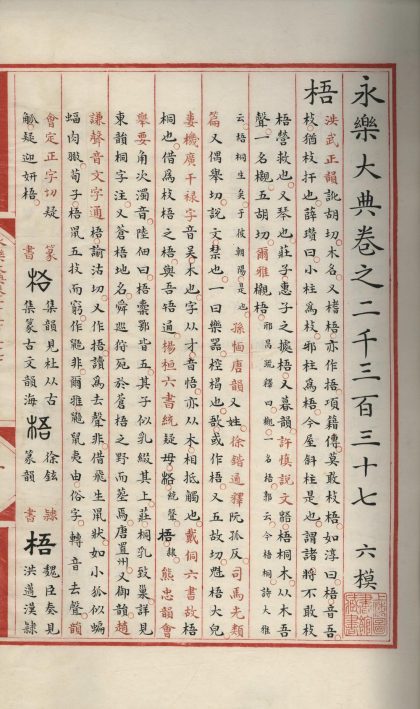 永樂大典卷之二千三百三十七 六模
梧 洪武正韻訛胡切木名又楮梧亦作捂項籍傳莫敢枝梧如淳曰梧音吾
枝猶枝扞也薛瓚曰小柱爲枝邪柱爲梧今屋斜柱是也謂諸將不敢枝
梧營救也又琴也莊子惠子之據梧又暮韻許慎說文梧桐木从木吾
聲一名櫬五胡切爾雅櫬梧 邢昺疏釋曰櫬一名梧郭云今梧桐詩大雅
云梧桐生矣于彼朝陽是也孫愐唐韻又姓徐鍇通釋阮孤反司馬光類
篇又偶舉切說文禁也一曰樂器椌楬也敔或作梧又五故切魁梧大皃
婁機廣干祿字音吴木也字从才音悟亦从木相抵觸也戴侗六書故梧
桐也借爲枝梧之梧與吾牾通楊桓六書統疑母 統聲 梧 隸 熊忠韻會
舉要角次濁音陸佃曰梧橐鄂皆五其子似乳綴其上莊桐乳致巢詳見
東韻桐字注又蒼梧地名舜巡狩死於蒼梧之野而塟焉唐置州又御韻趙
謙聲音文字通梧諭沽切又作捂讀爲去聲非借飛生鼠狀如小狐似蝙
蝠肉翅荀子梧鼠五技而窮作鼯非爾雅鼯鼠夷由俗字轉音去聲韻
會定正字切疑 篆書 集韻見杜从古 徐鉉 隸
觚疑迎妍梧 書 集篆古文韻海 梧 篆韻 書 梧 魏臣奏見洪邁漢隸